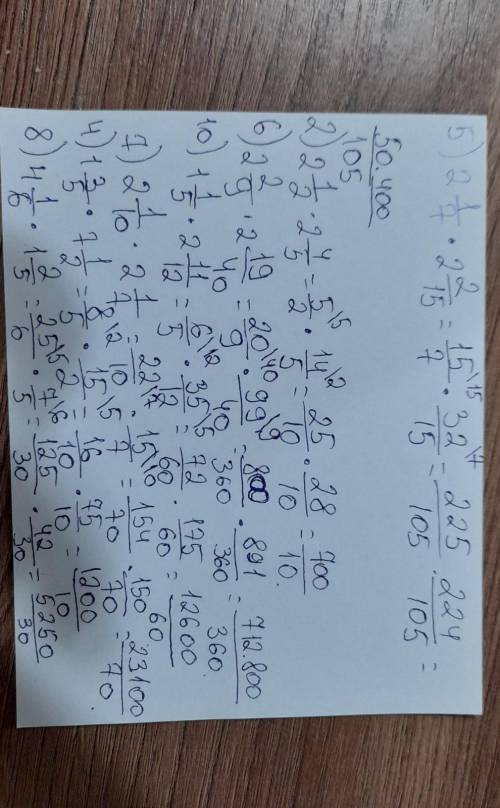 5) 2 1/7 · 2 2/15 = 15\15/7 · 32\7/15 = 225/105 · 224/105 =
50.400/105
2) 2 1/2 · 2 4/5 = 5\5/2 · 14\2/5 = 25/10 · 28/10 = 700/10.
6) 2 2/9 · 2 19/40 = 20\40/9 · 99\9/40 = 800/360 · 891/360 = 712.800/360.
10) 1 1/5 · 2 11/12 = 6\12/5 · 35\5/12 = 72/60 · 175/60 = 12600/60
7) 2 1/10 · 2 1/7 = 22\7/10 · 15\10/7 = 154/70 · 150/70 = 23100/70.
4) 1 3/5 · 7 1/2 = 8\2/5 · 15\5/2 = 16/10 · 75/10 = 1200/10
8) 4 1/6 · 1 2/5 = 25\5/6 · 7\6/5 = 125/30 · 42/30 = 5250/30